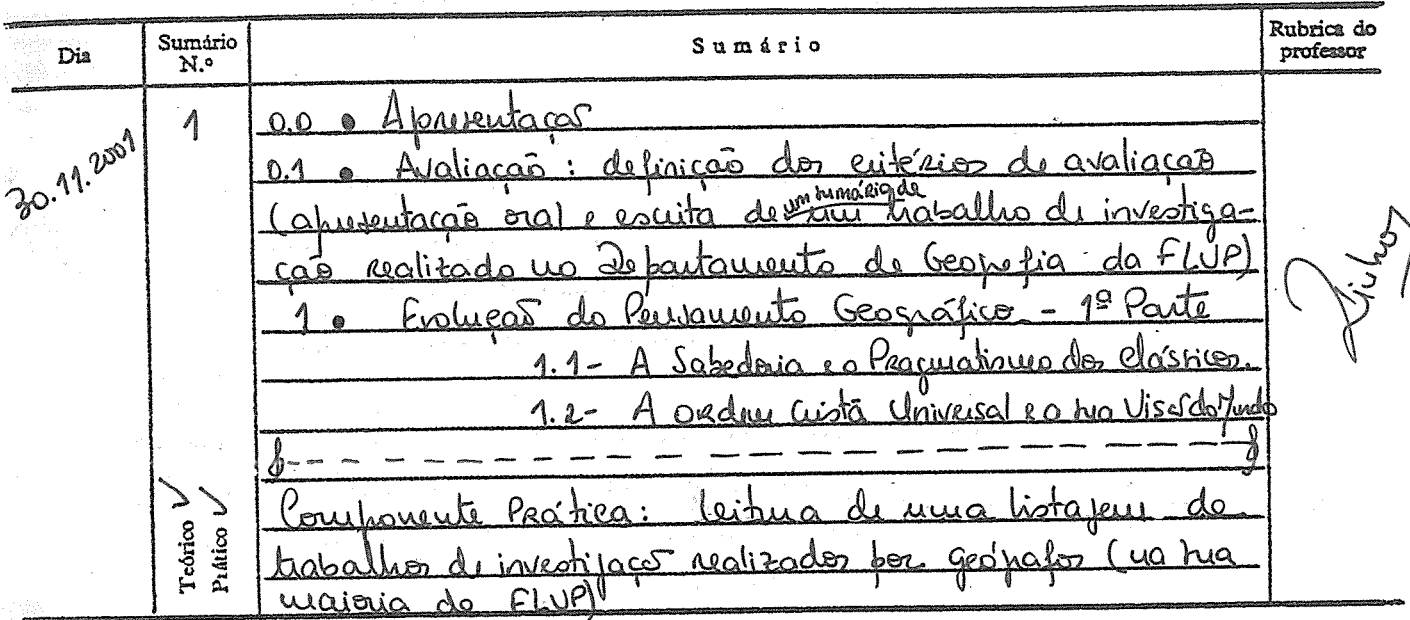 Dia Sumário N.º Sumário Rubrica do professor
30.11.2001 1 0.0 • Apresentação
0.1 • Avaliação: definição dos critérios de avaliação
(apresentação oral e escrita de um sumário de um trabalho de investiga-
ção realizado no Departamento de Geografia da FLUP)
1 • Evolução do Pensamento Geográfico - 1ª Parte
1.1- A Sabedoria e o Pragmatismo dos Clássicos
1.2- A ordem Cristã Universal e a sua Visão do Mundo
Teórico ✓ Prático ✓
Componente Prática: leitura de uma listagem de
trabalhos de investigação realizados por geógrafos (na sua
maioria da FLUP)